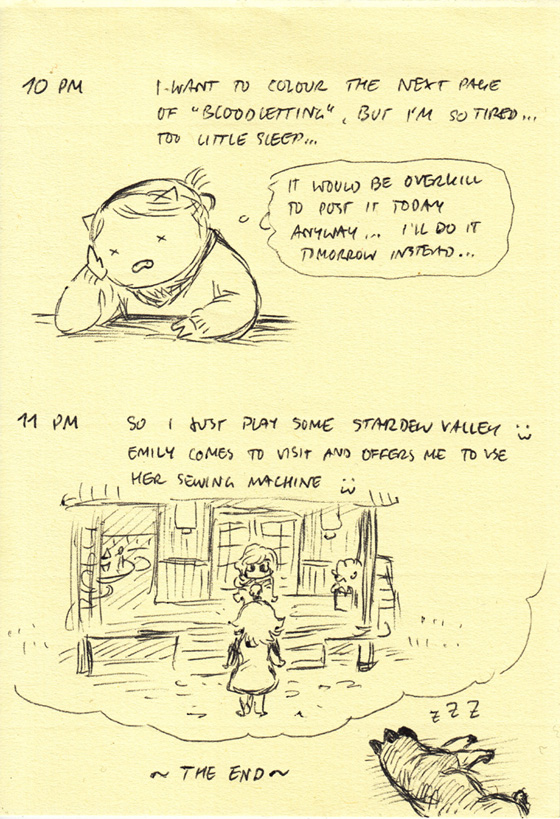 10 PM
I WANT TO COLOUR THE NEXT PAGE
OF "BLOODLETTING", BUT I'M SO TIRED...
TOO LITTLE SLEEP...
IT WOULD BE OVERKILL
TO POST IT TODAY
ANYWAY... I'LL DO IT
TOMORROW INSTEAD...
11 PM
SO I JUST PLAY SOME STARDEW VALLEY
EMILY COMES TO VISIT AND OFFERS ME TO USE
HER SEWING MACHINE
z Z Z
~ THE END ~